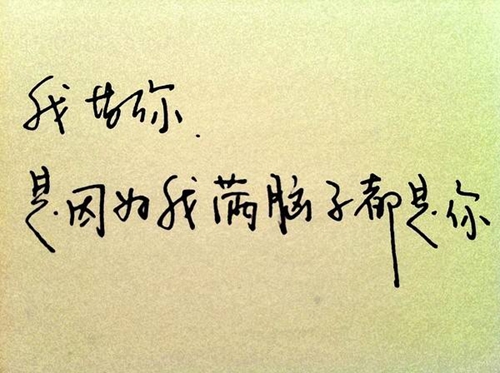 我你
是因为我满脑子都是你